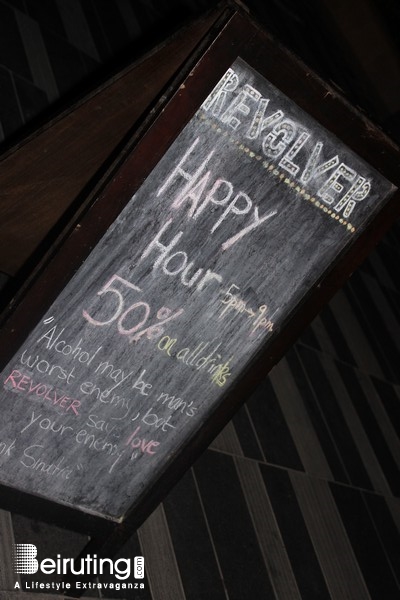 REVOLVER
HAPPY
Hour 5pm-9pm
50% on all drinks
"Alcohol may be man's
worst enemy, but
REVOLVER says love
your enemy"
Sinatra
Beiruting.com
A Lifestyle Extravaganza